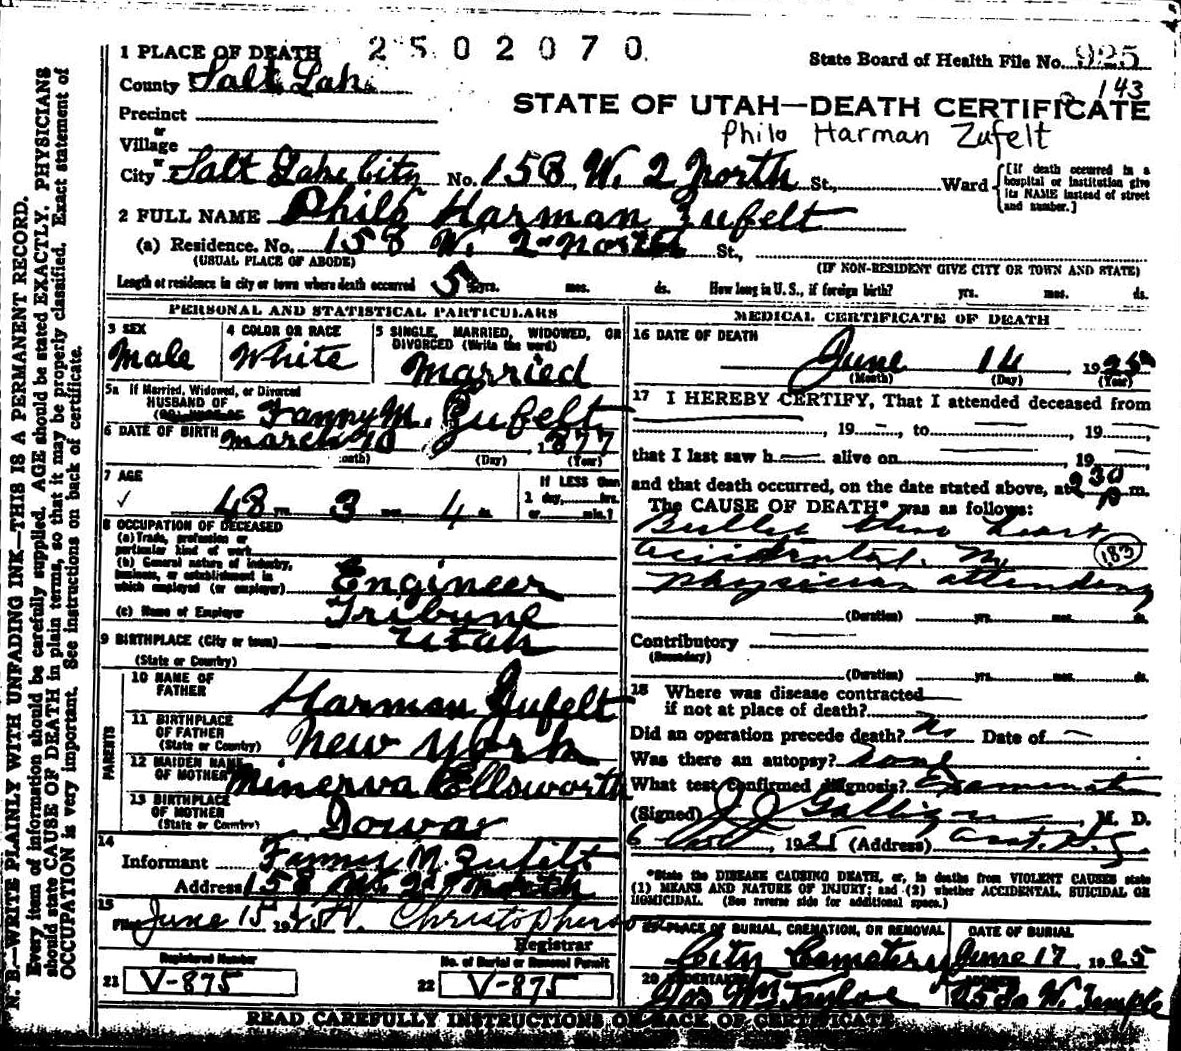 1 PLACE OF DEATH 2502070
State Board of Health File No. 925
143
County Salt Lake
STATE OF UTAH—DEATH CERTIFICATE
Precinct
or
Philo Harman Zufelt
Village
or
City Salt Lake City No. 158 W. 2 North St., Ward
[If death occurred in a hospital or institution give its NAME instead of street and number.]
2 FULL NAME Philo Harman Zufelt
(a) Residence. No. 158 W. 2nd North St.,
(USUAL PLACE OF ABODE) (IF NON-RESIDENT GIVE CITY OR TOWN AND STATE)
Length of residence in city or town where death occurred 5 yrs. mos. ds. How long in U. S., if foreign birth? yrs. mos. ds.
PERSONAL AND STATISTICAL PARTICULARS
3 SEX
Male
4 COLOR OR RACE
White
5 SINGLE, MARRIED, WIDOWED, OR
DIVORCED (Write the word)
Married
5a If Married, Widowed, or Divorced
HUSBAND OF Fanny M. Zufelt
6 DATE OF BIRTH March 10, 1877
(Day) (Year)
7 AGE
48 yrs. 3 mos. 4 ds.
If LESS than
1 day, hrs.
or min.?
8 OCCUPATION OF DECEASED
(a) Trade, profession or
particular kind of work
(b) General nature of industry,
business, or establishment in
which employed (or employer) Engineer
(c) Name of Employer Tribune
9 BIRTHPLACE (City or town) Utah
(State or Country)
PARENTS
10 NAME OF
FATHER Harman Zufelt
11 BIRTHPLACE
OF FATHER
(State or Country) New York
12 MAIDEN NAME
OF MOTHER Minerva Ellsworth
13 BIRTHPLACE
OF MOTHER
(State or Country)
14
Informant Fanny M. Zufelt
Address 158 W. 2nd North
15
June 15, 1925
Registrar
Registered Number
21 V-875
No. of Burial or Removal Permit
22 V-875
MEDICAL CERTIFICATE OF DEATH
16 DATE OF DEATH
June 14 1925
(Month) (Day) (Year)
17 I HEREBY CERTIFY, That I attended deceased from
, 19 , to , 19
that I last saw h alive on , 19
and that death occurred, on the date stated above, at 230 P m.
The CAUSE OF DEATH* was as follows:
Bullet thru heart
accidental. No (183)
physician attending
(Duration) yrs. mos. ds.
Contributory
(Secondary)
(Duration) yrs. mos. ds.
18 Where was disease contracted
if not at place of death?
Did an operation precede death? No Date of
Was there an autopsy?
What test confirmed diagnosis? Examination
(Signed) M. D.
1925 (Address)
*State the DISEASE CAUSING DEATH, or, in deaths from VIOLENT CAUSES state
(1) MEANS AND NATURE OF INJURY; and (2) whether ACCIDENTAL, SUICIDAL OR
HOMICIDAL. (See reverse side for additional space.)
PLACE OF BURIAL, CREMATION, OR REMOVAL
City Cemetery
DATE OF BURIAL
June 17, 1925
20 UNDERTAKER
READ CAREFULLY INSTRUCTIONS ON BACK OF CERTIFICATE
N. B.—WRITE PLAINLY WITH UNFADING INK—THIS IS A PERMANENT RECORD.
Every item of information should be carefully supplied. AGE should be stated EXACTLY. PHYSICIANS
should state CAUSE OF DEATH in plain terms, so that it may be properly classified. Exact statement of
OCCUPATION is very important. See instructions on back of certificate.